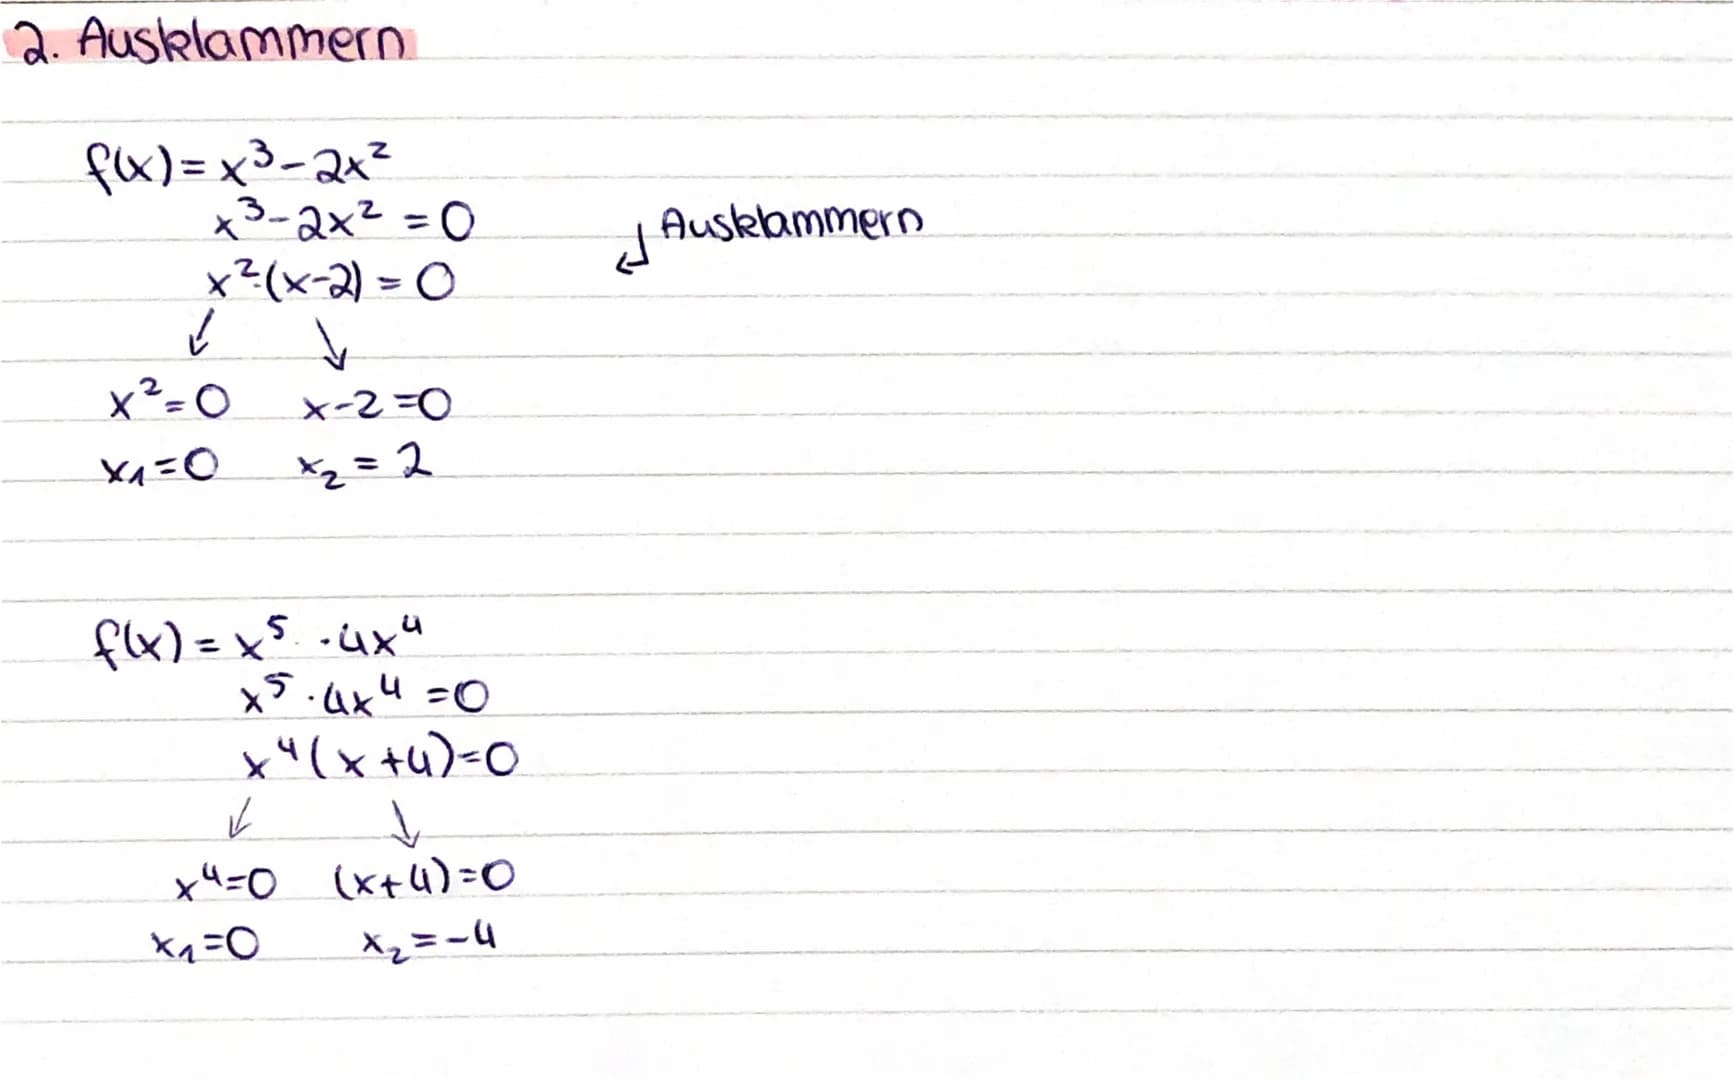 2. Ausklammern
f(x) = x³ - 2x²
x³ - 2x² = 0
Ausklammern
x² · (x-2) = 0
↙ ↘
x² = 0 x - 2 = 0
x₁ = 0 x₂ = 2
f(x) = x⁵ · 4x⁴
x⁵ · 4x⁴ = 0
x⁴ (x + 4) = 0
↙ ↘
x⁴ = 0 (x + 4) = 0
x₁ = 0 x₂ = -4